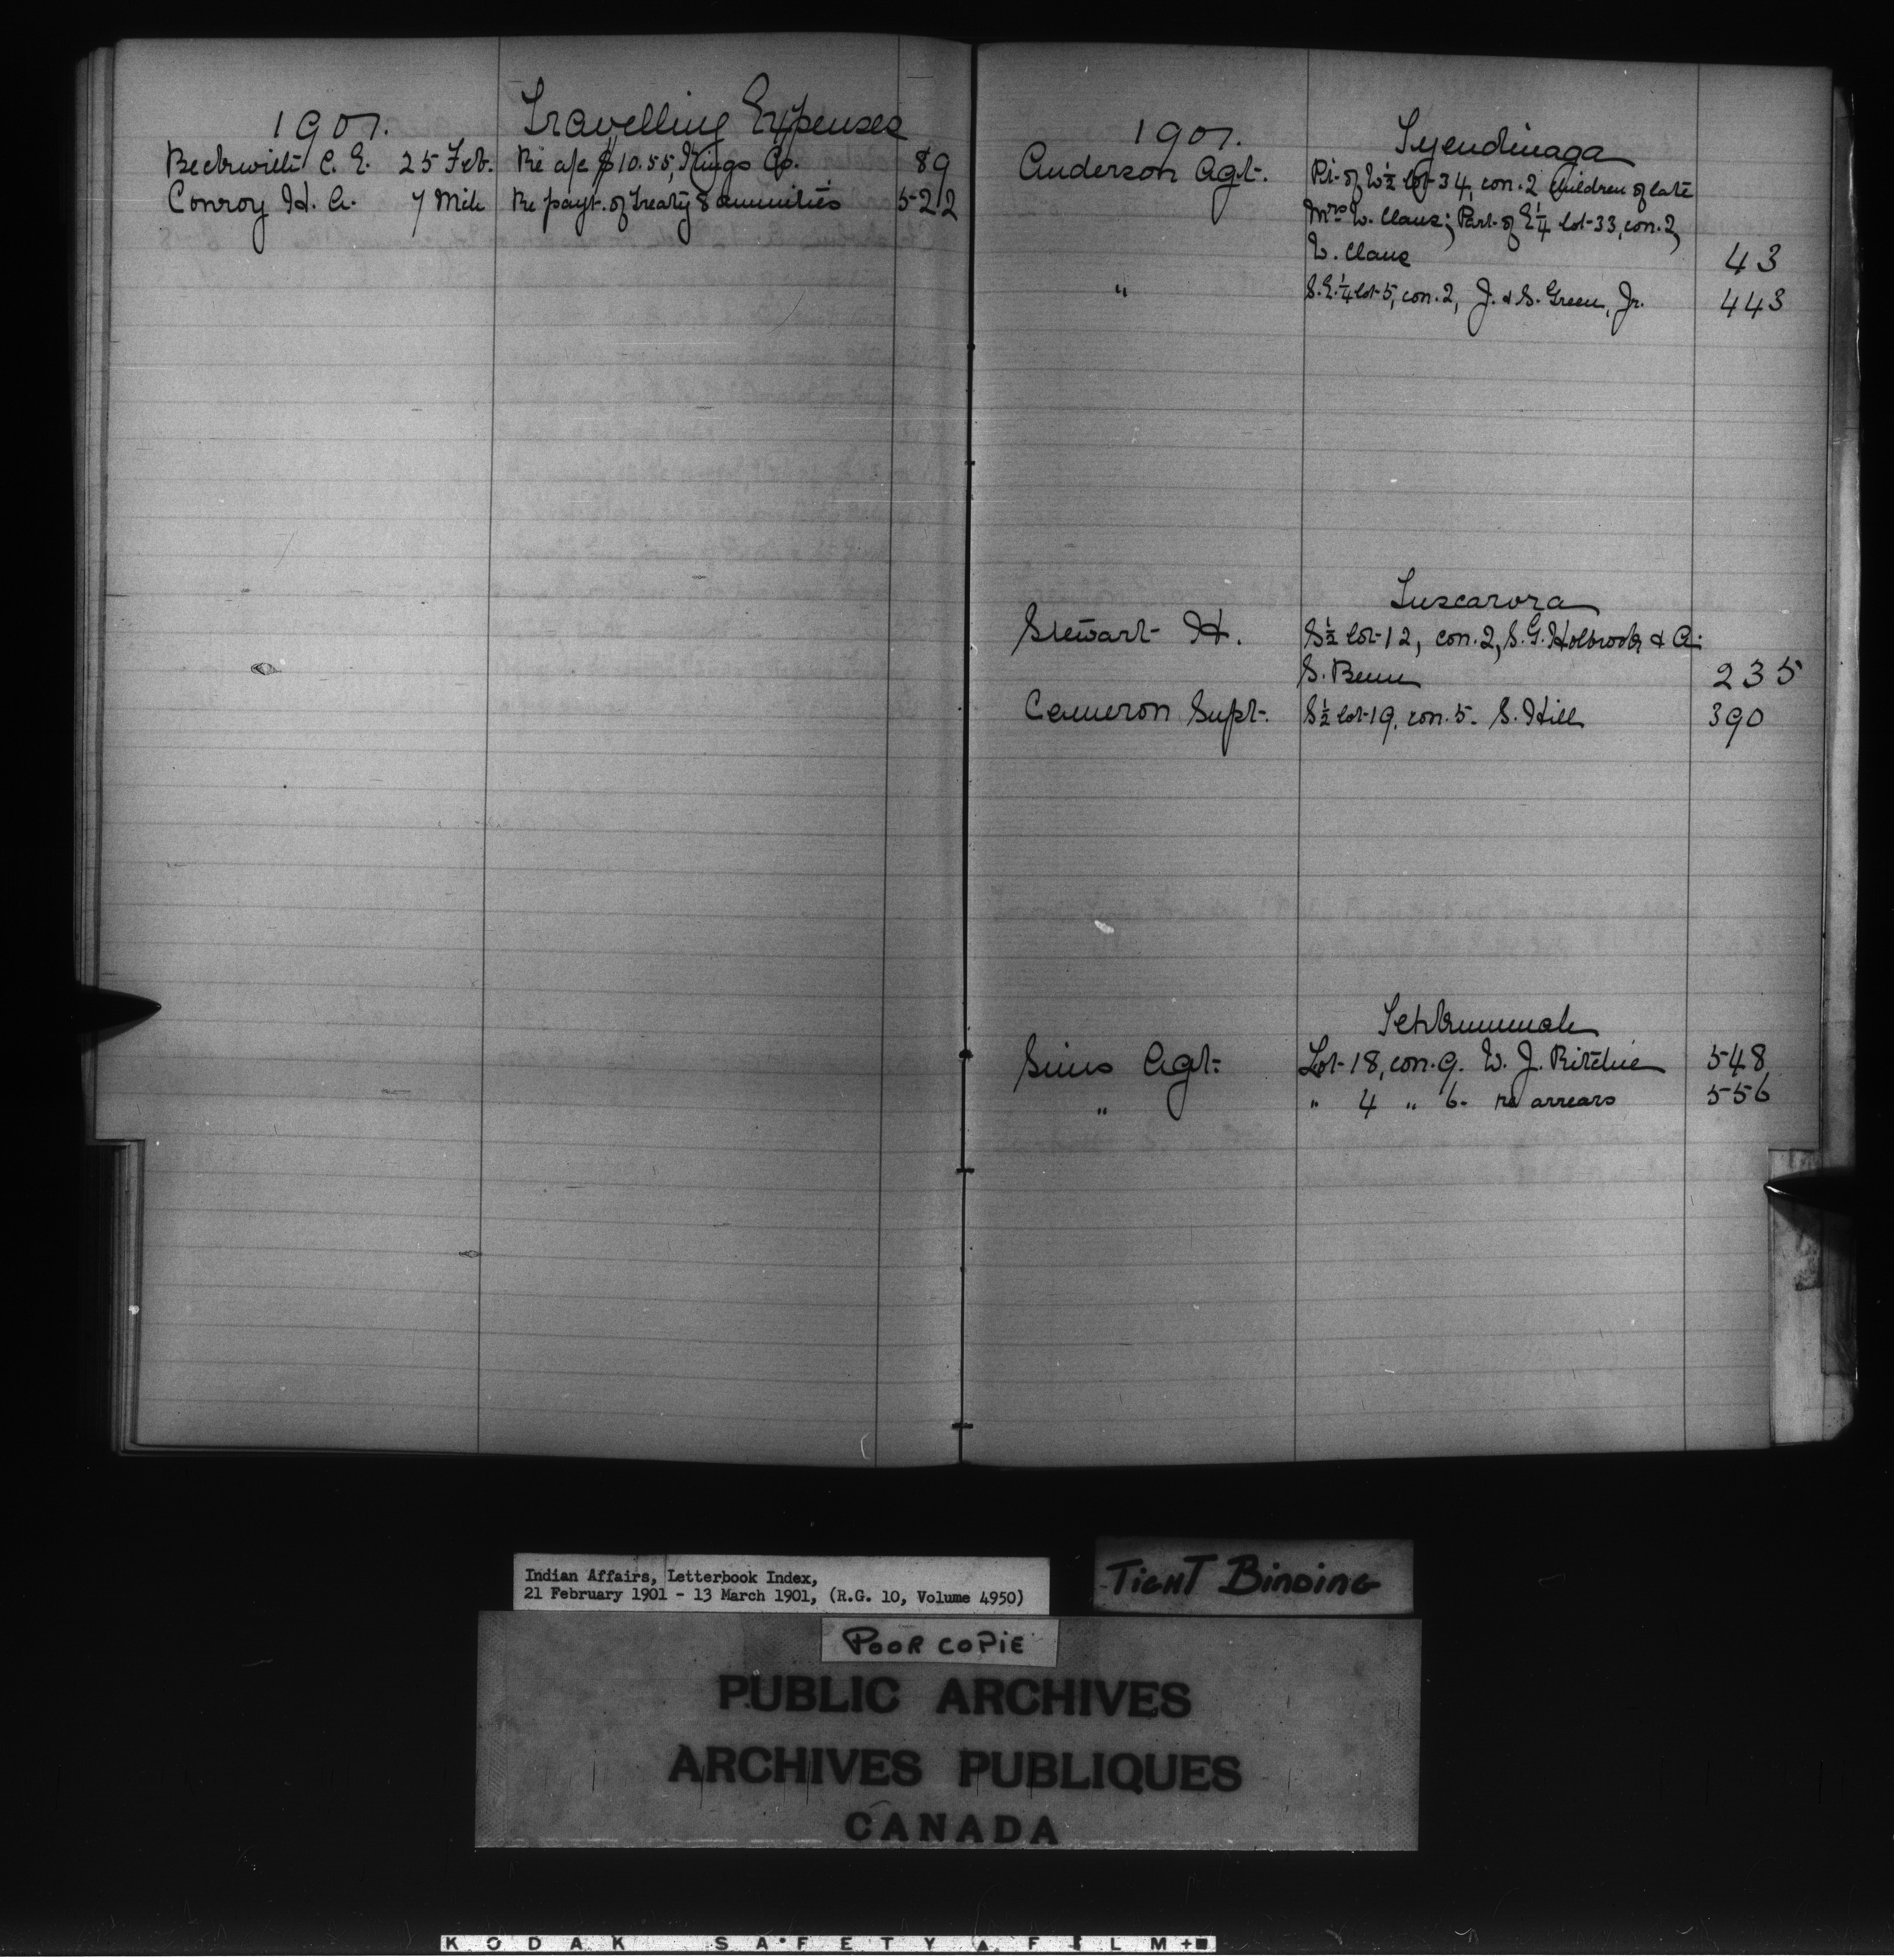 1901. Travelling Expenses
Beckwith C. E. 25 Feb. Re a/c $10.55, Kings Co. 89
Conroy H. A. 7 Mch Re payt. of Treaty 8 annuities 522
1901. Tyendinaga
Anderson Agt. Pt. of W½ lot 34, con. 2 children of late
Mrs W. Claus; Part of E¼ lot 33, con. 2,
W. Claus 43
" S.E.¼ lot 5, con. 2, J. & S. Green, Jr. 443
Tuscarora
Stewart H. S½ lot 12, con. 2, S. G. Holbrook & A.
S. Benn 235
Cameron Supt. S½ lot 19, con. 5. S. Hill 390
Tehkummah
Sims Agt. Lot 18, con. 9. W. J. Ritchie 548
" " 4 " 6. re arrears 556
Indian Affairs, Letterbook Index,
21 February 1901 - 13 March 1901, (R.G. 10, Volume 4950)
TIGHT BINDING
POOR COPIE
PUBLIC ARCHIVES
ARCHIVES PUBLIQUES
CANADA
KODAK SAFETY FILM